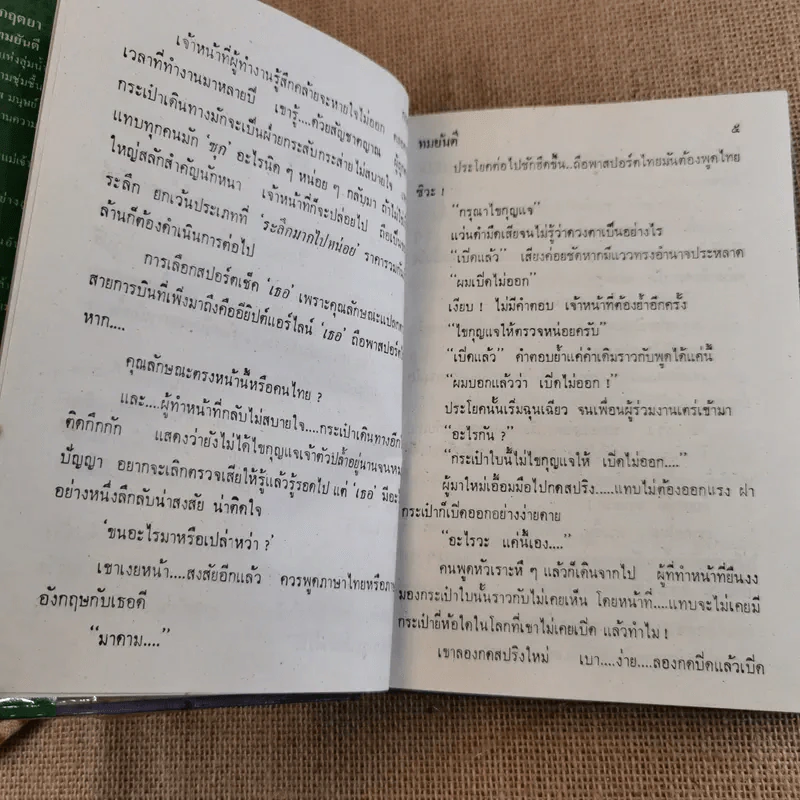 กฤตยา
ทมยันตี
แม่เจ้า
เจ้าหน้าที่ผู้ทำงานรู้สึกคล้ายจะหายใจไม่ออก
เวลาที่ทำงานมาหลายปี เขารู้....ด้วยสัญชาตญาณ
กระเป๋าเดินทางมักจะเป็นฝ่ายกระสับกระส่ายไม่สบายใจ
แทบทุกคนมัก 'ซุก' อะไรนิด ๆ หน่อย ๆ กลับมา ถ้าไม่ใช่
ใหญ่สลักสำคัญนักหนา เจ้าหน้าที่ก็จะปล่อยไป ถือเป็น
ระลึก ยกเว้นประเภทที่ 'ระลึกมากไปหน่อย' ราคารวมกัน
ล้านก็ต้องดำเนินการต่อไป
การเลือกสปอร์ตเช็ค 'เธอ' เพราะคุณลักษณะแปลก
สายการบินที่เพิ่งมาถึงคืออียิปต์แอร์ไลน์ 'เธอ' ถือพาสปอร์ต
หาก....
คุณลักษณะตรงหน้านี้หรือคนไทย ?
และ....ผู้ทำหน้าที่กลับไม่สบายใจ....กระเป๋าเดินทางอีก
ติดกึกกัก แสดงว่ายังไม่ได้ไขกุญแจเจ้าตัวปล้ำอยู่นานจนหมด
ปัญญา อยากจะเลิกตรวจเสียให้รู้แล้วรู้รอดไป แต่ 'เธอ' มีอะ
อย่างหนึ่งลึกลับน่าสงสัย น่าติดใจ
'ขนอะไรมาหรือเปล่าหว่า ?'
เขาเงยหน้า....สงสัยอีกแล้ว ควรพูดภาษาไทยหรือภา
อังกฤษกับเธอดี
“มาดาม....”
ทมยันตี ๕
ประโยคต่อไปชักฮึดขึ้น..ถือพาสปอร์ตไทยมันต้องพูดไทย
ซิวะ !
“กรุณาไขกุญแจ”
แว่นดำมืดเสียจนไม่รู้ว่าดวงตาเป็นอย่างไร
“เปิดแล้ว” เสียงค่อยชัดหากมีแววทรงอำนาจประหลาด
“ผมเปิดไม่ออก”
เงียบ ! ไม่มีคำตอบ เจ้าหน้าที่ต้องย้ำอีกครั้ง
“ไขกุญแจให้ตรวจหน่อยครับ”
“เปิดแล้ว” คำตอบย้ำแค่คำเดิมราวกับพูดได้แค่นี้
“ผมบอกแล้วว่า เปิดไม่ออก !”
ประโยคนั้นเริ่มฉุนเฉียว จนเพื่อนผู้ร่วมงานเตร่เข้ามา
“อะไรกัน ?”
“กระเป๋าใบนี้ไม่ไขกุญแจให้ เปิดไม่ออก....”
ผู้มาใหม่เอื้อมมือไปกดสปริง.....แทบไม่ต้องออกแรง ฝา
กระเป๋าก็เปิดออกอย่างง่ายดาย
“อะไรวะ แค่นี้เอง....”
คนพูดหัวเราะหึ ๆ แล้วก็เดินจากไป ผู้ที่ทำหน้าที่ยืนงง
มองกระเป๋าใบนั้นราวกับไม่เคยเห็น โดยหน้าที่....แทบจะไม่เคยมี
กระเป๋ายี่ห้อใดในโลกที่เขาไม่เคยเปิด แล้วทำไม !
เขาลองกดสปริงใหม่ เบา....ง่าย....ลองกดปิดแล้วเปิด